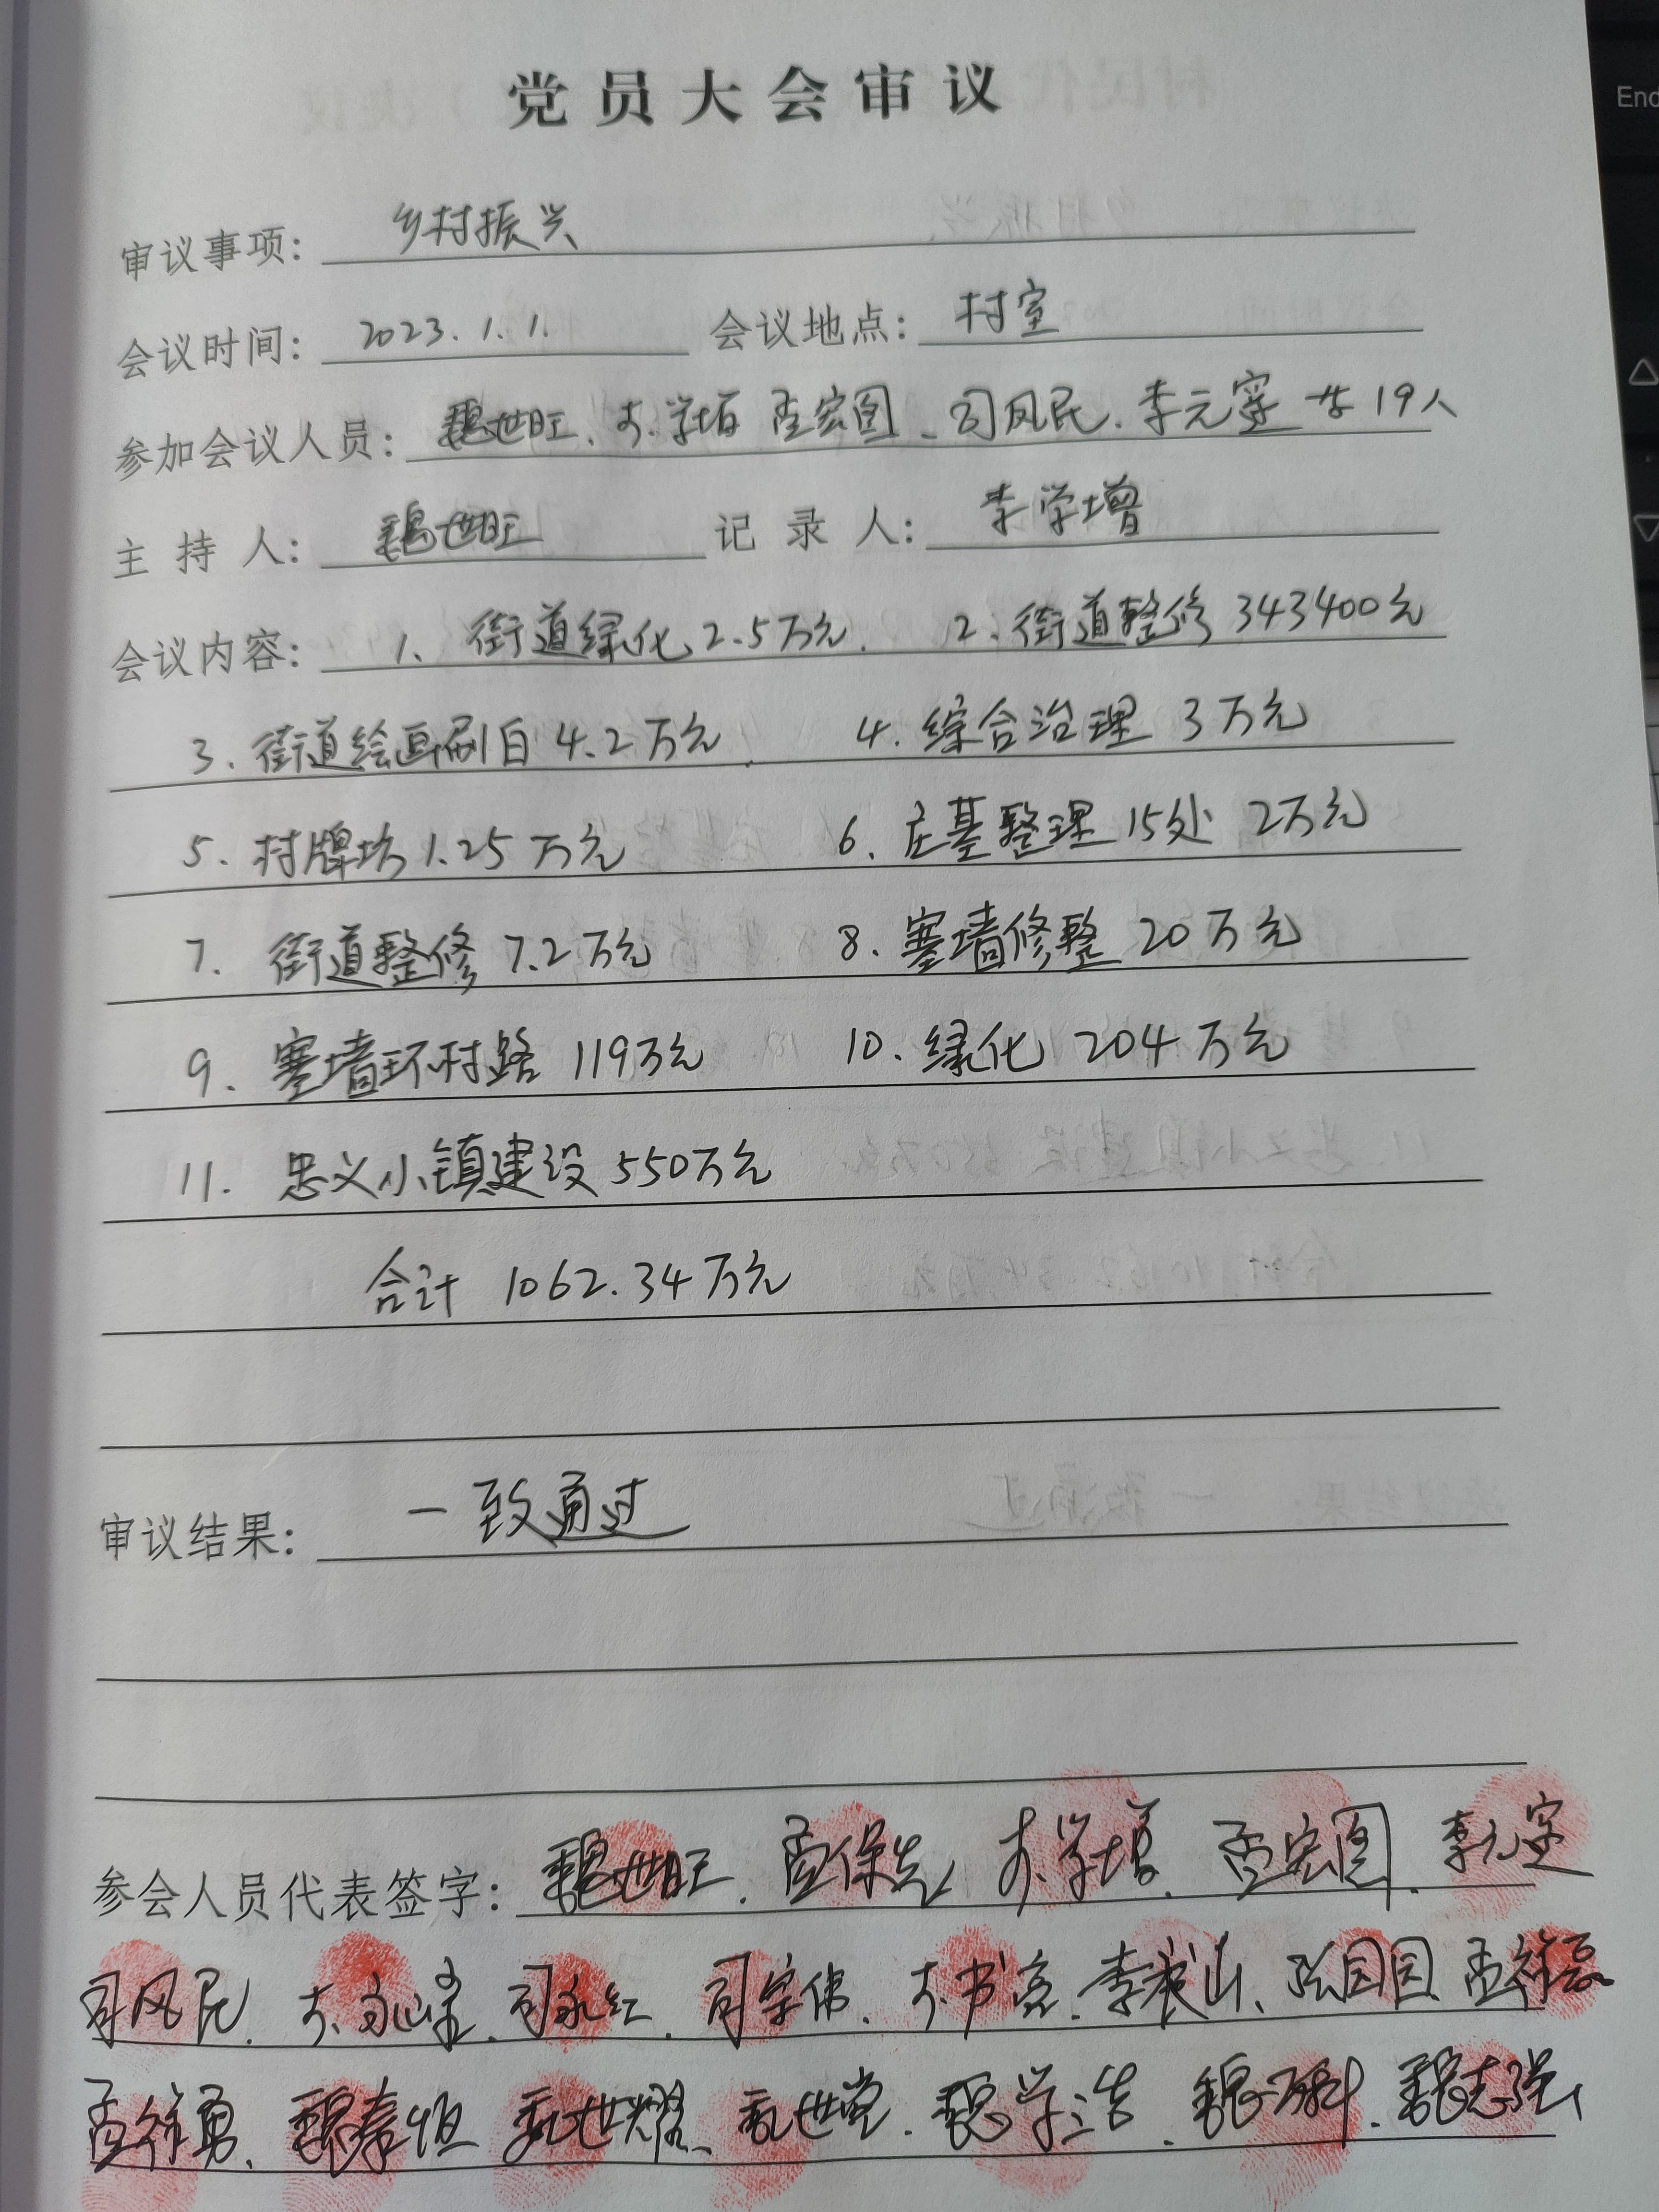 党员大会审议
审议事项: 乡村振兴
会议时间: 2023.1.1. 会议地点: 村室
参加会议人员: 魏世旺、李学增 孟宏图、司风民、李元定 共19人
主持人: 魏世旺 记录人: 李学增
会议内容: 1、街道绿化2.5万元. 2、街道整修 343400元
3、街道绘画刷白 4.2万元、 4.综合治理 3万元
5、村牌坊1.25万元 6、庄基整理15处 2万元
7、街道整修7.2万元 8、寨墙修整20万元
9、寨墙环村路 119万元 10、绿化 204万元
11. 忠义小镇建设550万元
合计 1062.34万元
审议结果: 一致通过
参会人员代表签字: 魏世旺、孟保先 李学增、孟宏图、李元定
司风民、李、司永红、司宇伟、李书亮、李岗山、张园园 孟祥磊
孟祥勇、魏春恒 魏世耀、魏世党、魏学浩、魏万科、魏志强
End